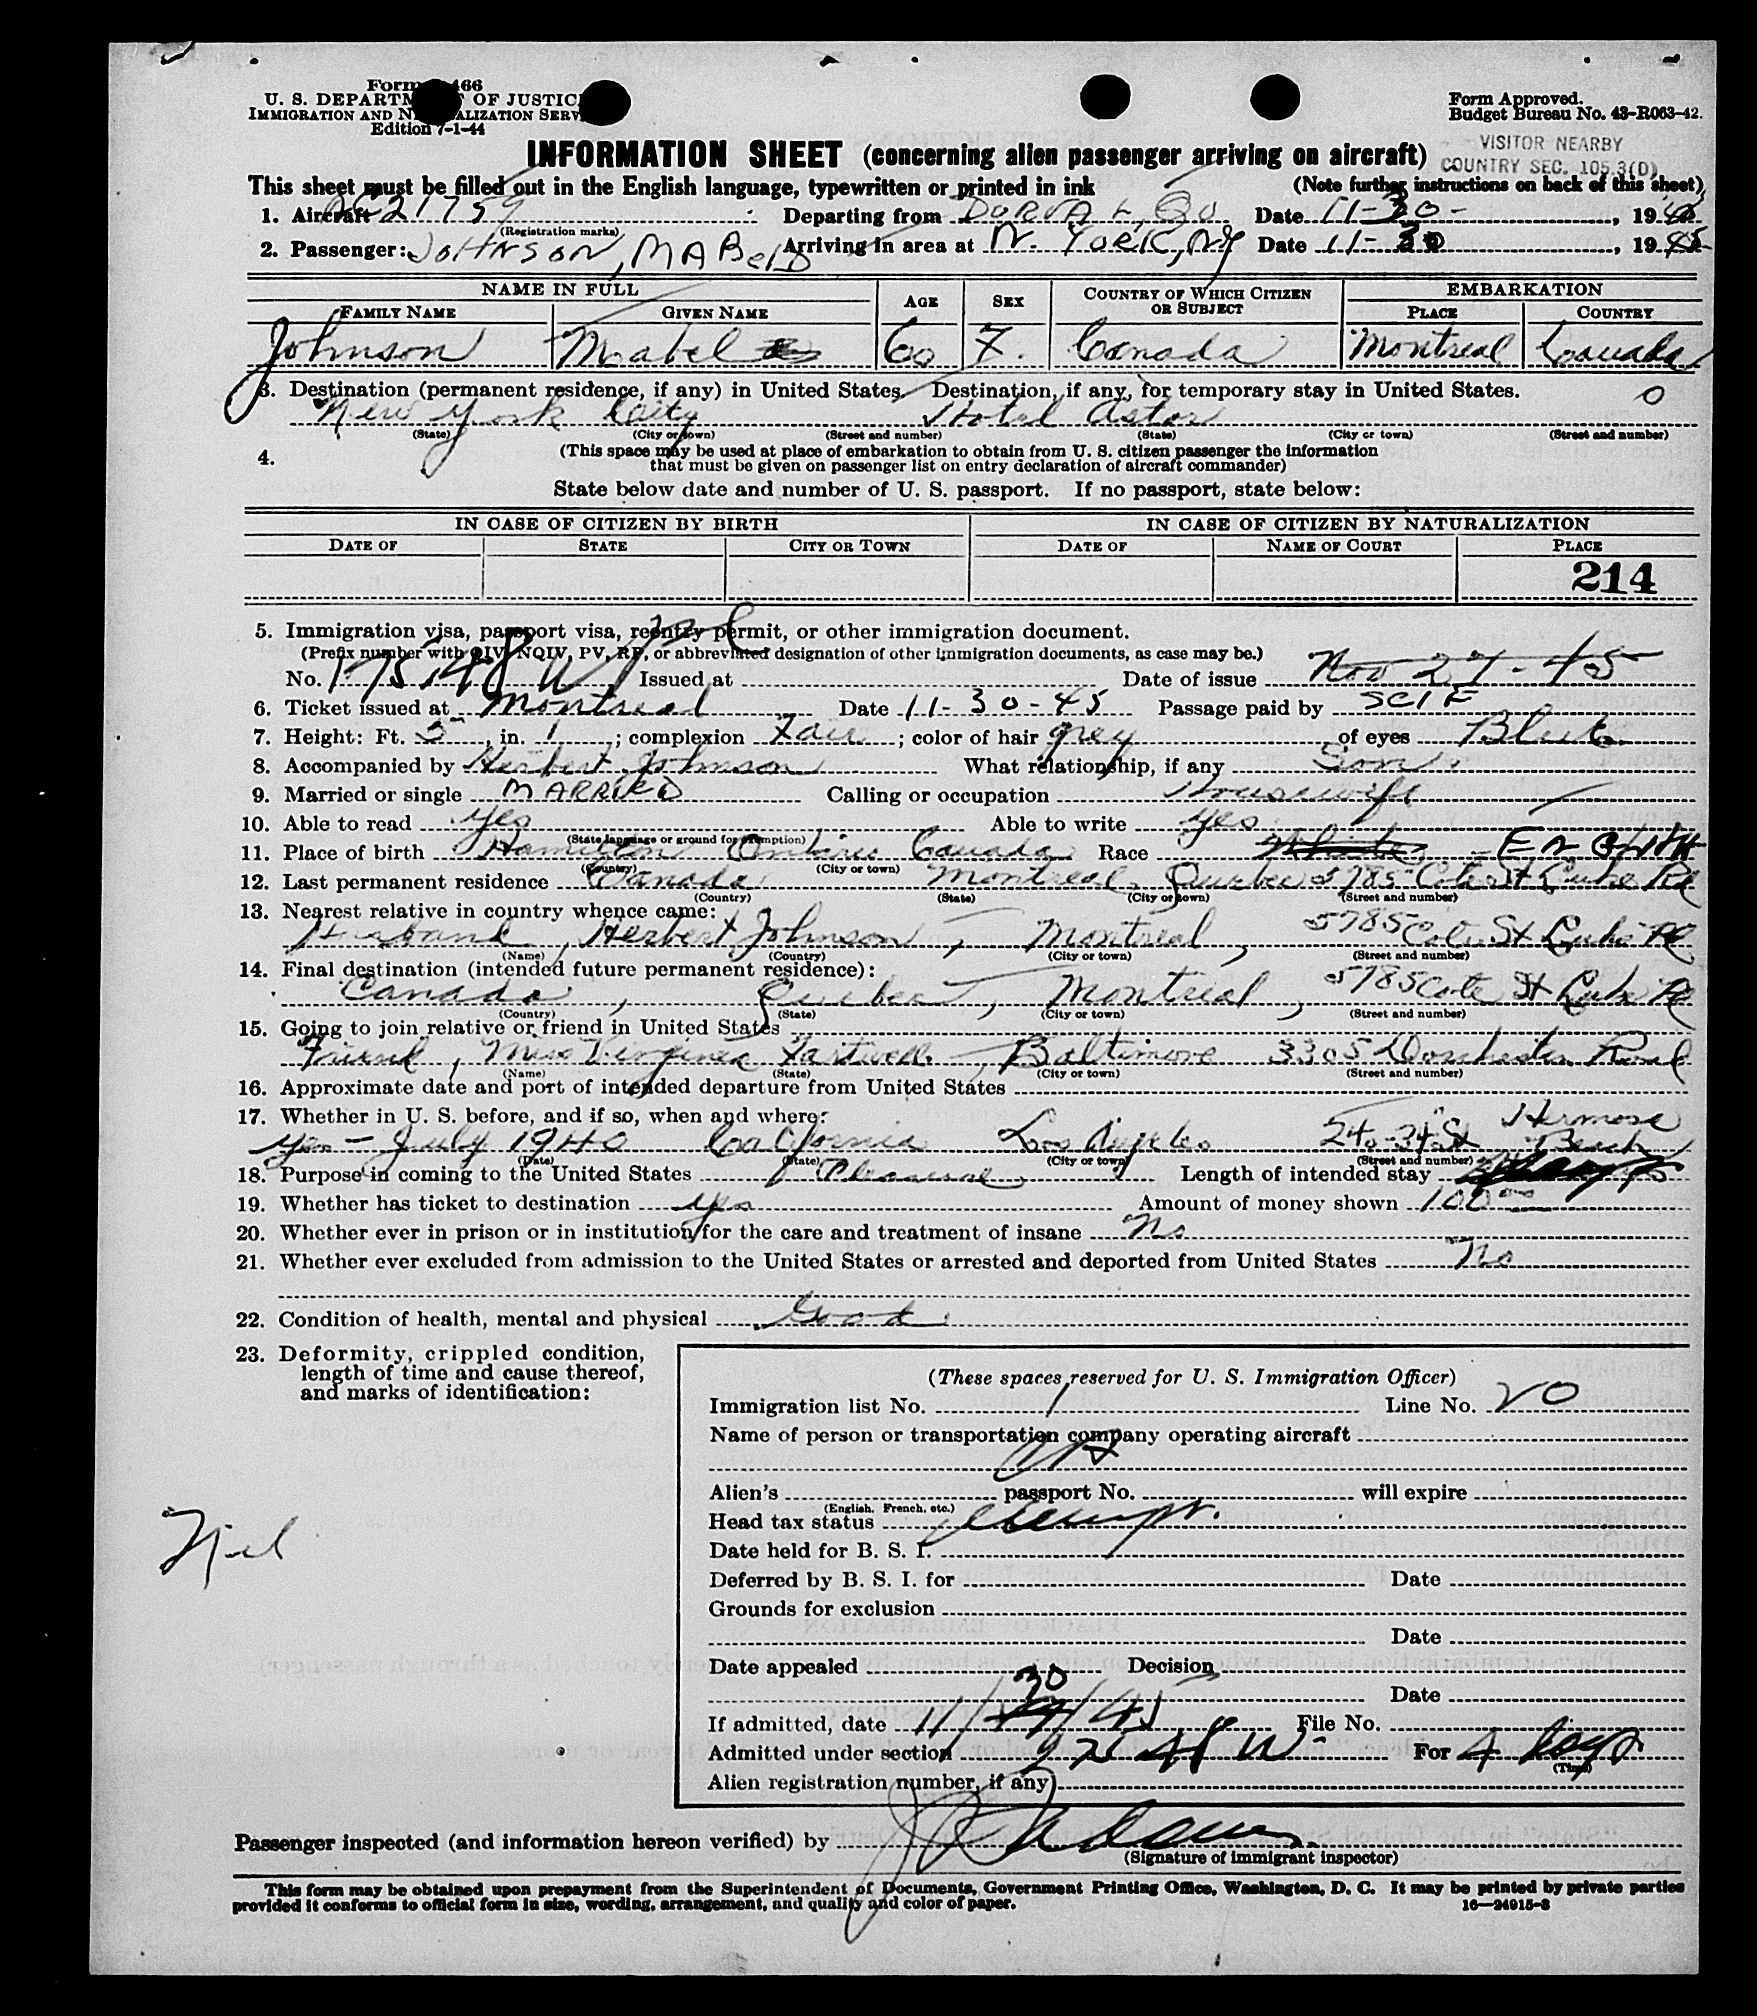 Form 466
U. S. DEPARTM OF JUSTIC
IMMIGRATION AND N ALIZATION SERV
Edition 7-1-44
Form Approved.
Budget Bureau No. 43-R063-42.
VISITOR NEARBY
COUNTRY SEC. 105.3(D)
INFORMATION SHEET (concerning alien passenger arriving on aircraft)
This sheet must be filled out in the English language, typewritten or printed in ink (Note further instructions on back of this sheet)
1. Aircraft 21759 Departing from DORVAL, QU Date 11-30-, 1945
(Registration marks)
2. Passenger: JOHNSON, MABEL Arriving in area at N. YORK, NY Date 11-30, 1945
NAME IN FULL AGE SEX COUNTRY OF WHICH CITIZEN OR SUBJECT EMBARKATION
FAMILY NAME GIVEN NAME PLACE COUNTRY
Johnson Mabel 60 F. Canada Montreal Canada
3. Destination (permanent residence, if any) in United States. Destination, if any, for temporary stay in United States. 0
New York City Hotel Astor
(State) (City or town) (Street and number) (State) (City or town) (Street and number)
4. (This space may be used at place of embarkation to obtain from U. S. citizen passenger the information
that must be given on passenger list on entry declaration of aircraft commander)
State below date and number of U. S. passport. If no passport, state below:
IN CASE OF CITIZEN BY BIRTH IN CASE OF CITIZEN BY NATURALIZATION
DATE OF STATE CITY OR TOWN DATE OF NAME OF COURT PLACE
214
5. Immigration visa, passport visa, reentry permit, or other immigration document.
(Prefix number with QIV, NQIV, PV, RP, or abbreviated designation of other immigration documents, as case may be.)
No. 175148 W Issued at Date of issue Nov 27-45
6. Ticket issued at Montreal Date 11-30-45 Passage paid by SELF
7. Height: Ft. 5, in. 1; complexion Fair; color of hair grey of eyes Blue
8. Accompanied by Herbert Johnson What relationship, if any Son.
9. Married or single MARRIED Calling or occupation Housewife
10. Able to read yes Able to write yes.
(State language or ground for exemption)
11. Place of birth Hamilton Ontario Canada Race White - ENGLISH
(Country) (City or town)
12. Last permanent residence Canada Montreal, Quebec 5785 Cote St Luke Rd
(Country) (State) (City or town) (Street and number)
13. Nearest relative in country whence came:
Husband, Herbert Johnson, Montreal, 5785 Cote St Luke Rd
(Name) (Country) (City or town) (Street and number)
14. Final destination (intended future permanent residence):
Canada, Quebec, Montreal, 5785 Cote St Luke Rd
(Country) (State) (City or town) (Street and number)
15. Going to join relative or friend in United States
Friend, Miss Virginia, Baltimore 3305 Dorchester Road
(Name) (State) (City or town) (Street and number)
16. Approximate date and port of intended departure from United States
17. Whether in U. S. before, and if so, when and where: Hermosa
Yes - July 1940 California Los Angeles 240-34 St Beach
(Date) (State) (City or town) (Street and number)
18. Purpose in coming to the United States Pleasure Length of intended stay
19. Whether has ticket to destination yes Amount of money shown 100
20. Whether ever in prison or in institution for the care and treatment of insane No
21. Whether ever excluded from admission to the United States or arrested and deported from United States No
22. Condition of health, mental and physical Good
23. Deformity, crippled condition,
length of time and cause thereof,
and marks of identification:
Nil
(These spaces reserved for U. S. Immigration Officer)
Immigration list No. 1 Line No. 20
Name of person or transportation company operating aircraft
Alien's passport No. will expire
(English, French, etc.)
Head tax status exempt.
Date held for B. S. I.
Deferred by B. S. I. for Date
Grounds for exclusion
Date
Date appealed Decision
Date
30
If admitted, date 11/ /45 File No.
Admitted under section For 4 days
(Time)
Alien registration number, if any
Passenger inspected (and information hereon verified) by
(Signature of immigrant inspector)
This form may be obtained upon prepayment from the Superintendent of Documents, Government Printing Office, Washington, D. C. It may be printed by private parties
provided it conforms to official form in size, wording, arrangement, and quality and color of paper. 16—24915-2